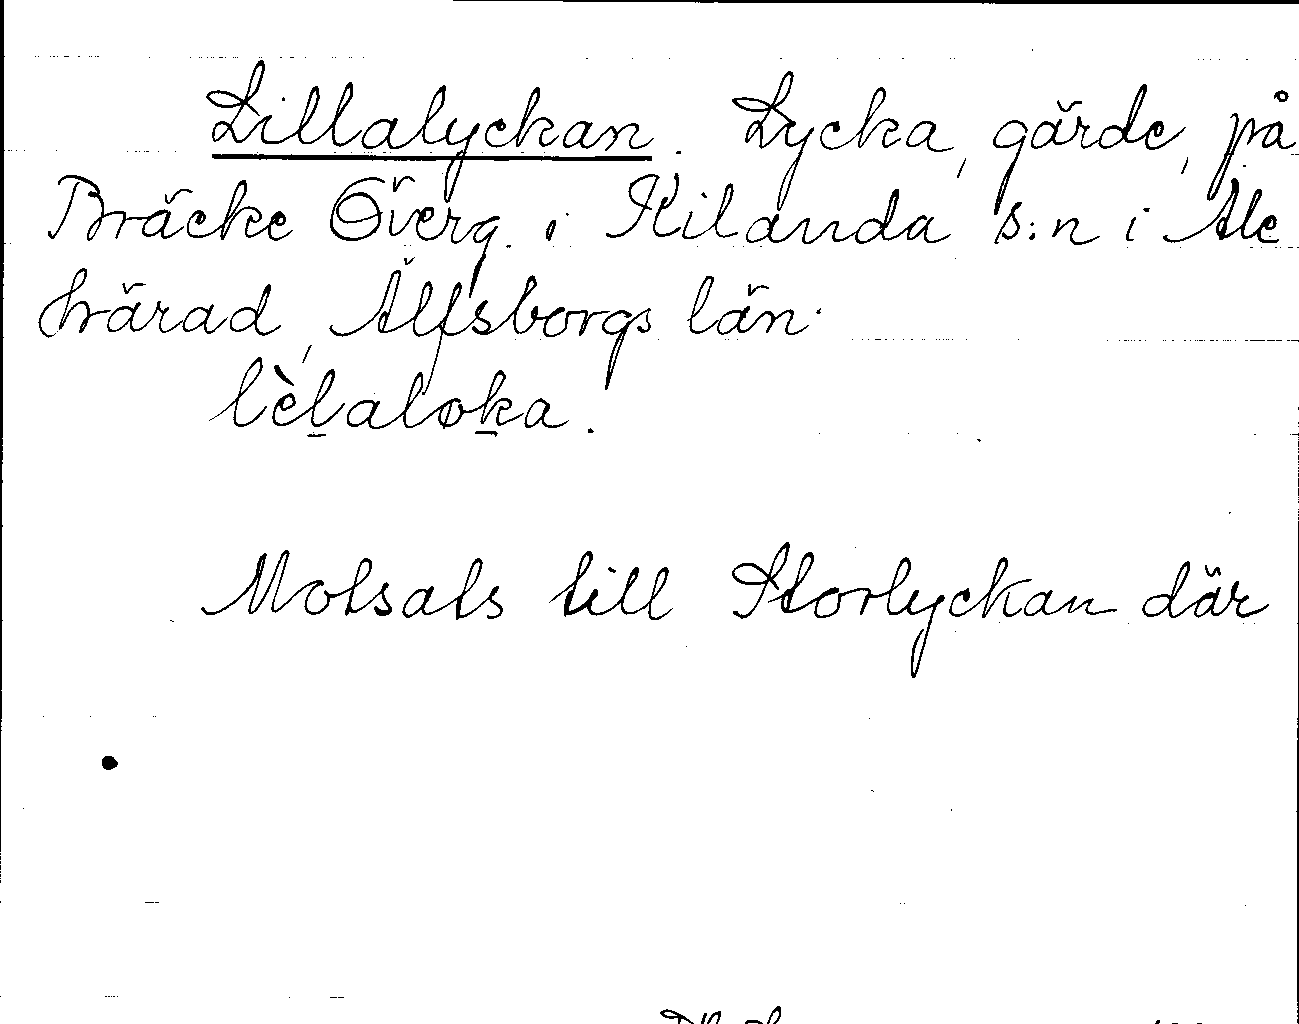 Lillalyckan. Lycka, gärde, på
Bräcke Överg. i Kilanda s:n i Ale
härad, Älfsborgs län.
lèl̠aløk̠a.
Motsats till Storlyckan där